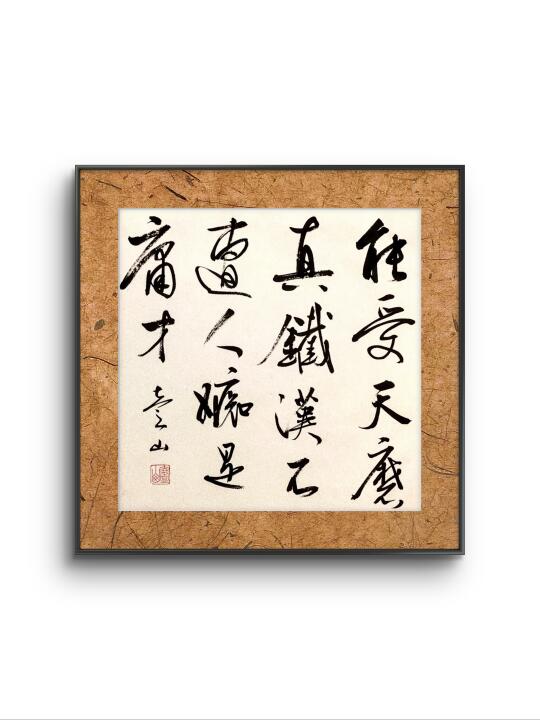 能受天磨
真鐵漢不
遭人嫉是
庸才
山